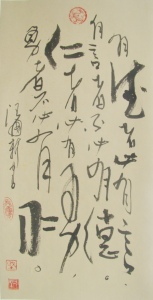 有德者必有言。
有言者不必有德。
仁者必有勇。
勇者不必有仁。